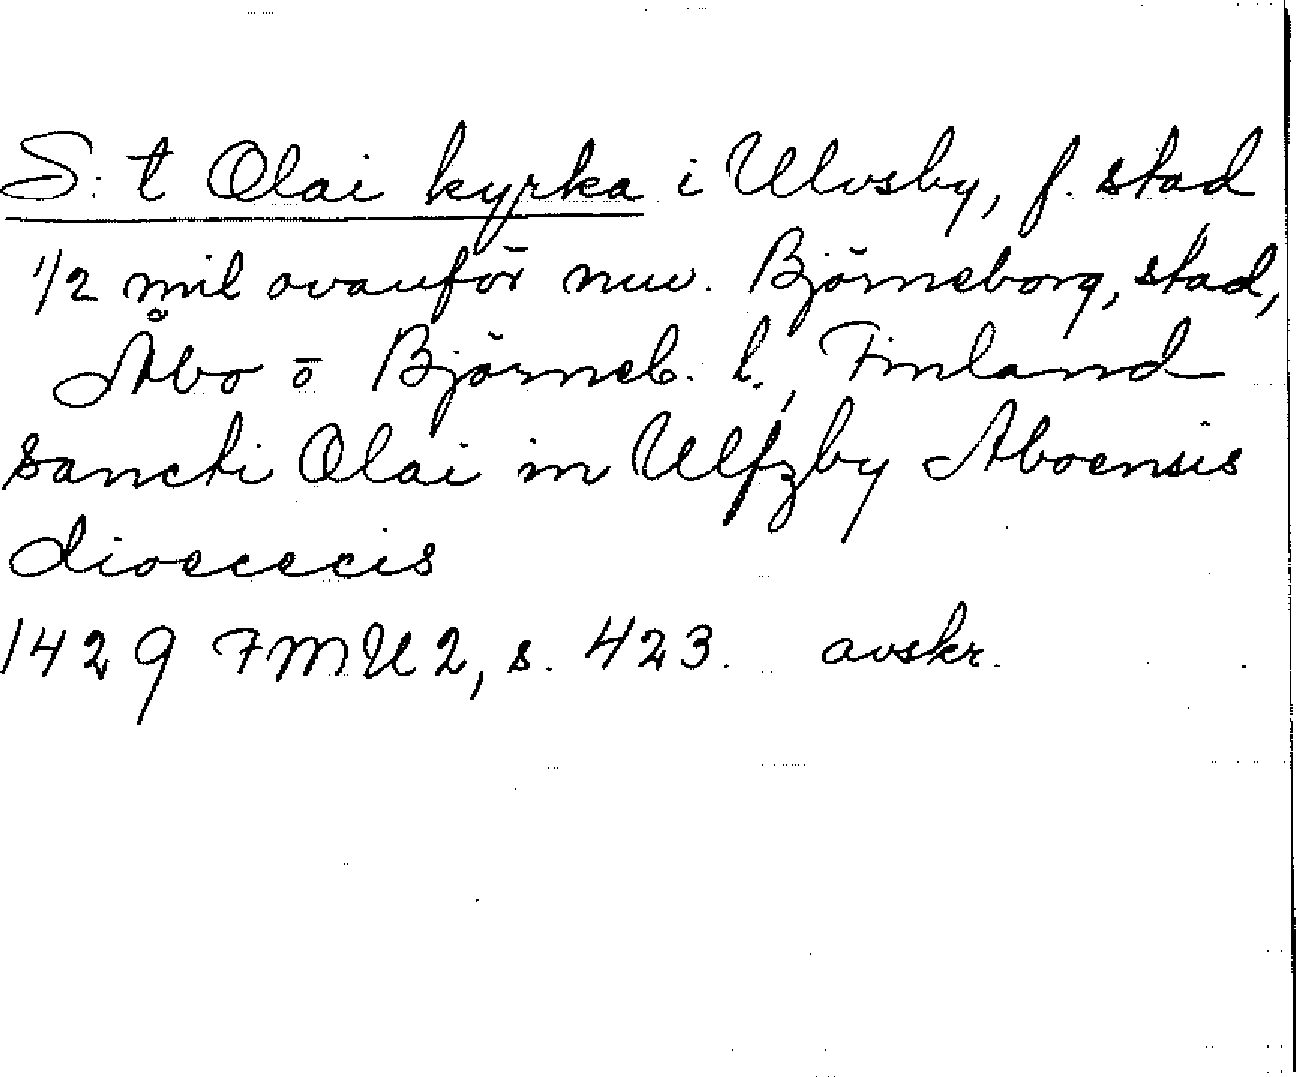 S:t Olai kyrka i Ulvsby, f. stad
1/2 mil ovanför nuv. Björneborg, stad,
Åbo o Björneb. l., Finland
sancti Olai in Ulfzby Aboensis
dioececis
1429 FMU 2, s. 423. avskr.